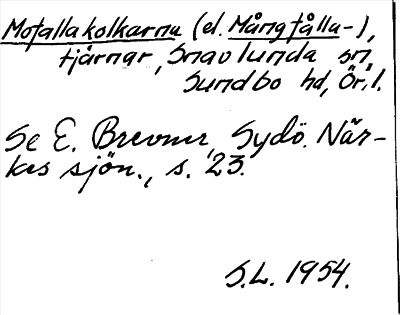 Motallakolkarna (el. Mångtålla-),
tjärnar, Snavlunda sn,
Sundbo hd, Ör. l.
Se E. Brevner, Sydö. När-
kes sjön., s. 23.
S.L. 1954.